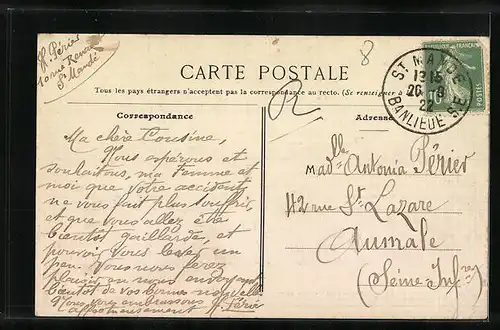 H. Périer
10 rue Renault
St Mandé
8
CARTE POSTALE
Tous les pays étrangers n'acceptent pas la correspondance au recto. (Se renseigner à
Correspondance
Adresse
ST MANDÉ
13 15
20 - 9
22
BANLIEUE
POSTES
Ma chère Cousine,
Nous espérons et
souhaitons, ma femme et
moi que votre accident
ne vous fait plus souffrir,
et que vous allez être
bientôt gaillarde, et
pouvoir vous lever un
peu. Vous nous ferez
plaisir en nous envoyant
bientôt de vos bonnes nouvelles
Nous vous embrassons
affectueusement H. Périer
Madlle Antonia Périer
42 rue St Lazare
Aumale
(Seine Infre)